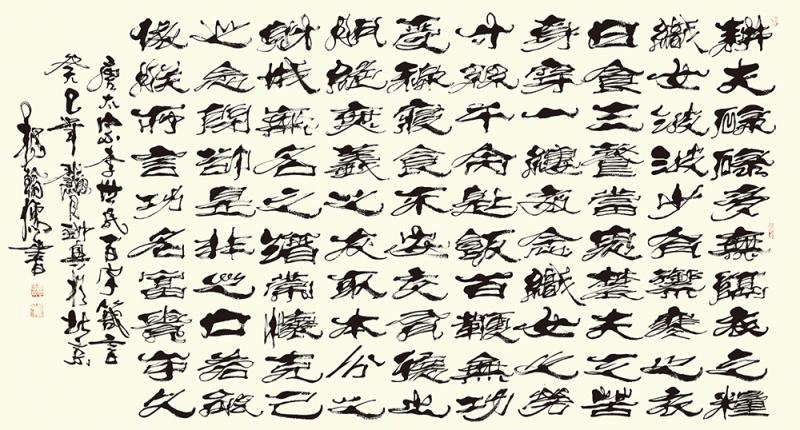 耕夫碌碌多無隔夜之糧
織女波波少有禦寒之衣
日食三餐當思農夫之苦
身穿一縷每念織女之勞
寸絲千命匙飯百鞭無功
受祿寢食不安交有德之
朋絕無義之友取本分之
財戒無名之酒常懷克己
之心閉卻是非之口若能
依朕所言功名富貴可久
唐太宗李世民百字箴言
癸巳年 月 於北京
書